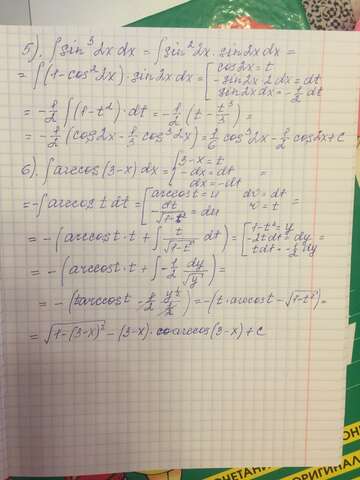 5). ∫sin³2x dx = ∫sin²2x · sin2x dx =
= ∫(1-cos²2x) · sin2x dx = [cos2x = t
-sin2x · 2dx = dt
sin2x dx = -1/2 dt
= -1/2 ∫(1-t²) · dt = -1/2 (t - t³/3) =
= -1/2 (cos2x - 1/3 cos³2x) = 1/6 cos³2x - 1/2 cos2x + C
6). ∫arccos(3-x) dx = [3-x = t
-dx = dt
dx = -dt
= -∫arccos t dt = [arccos t = u dv = dt
dt/√1-t² = du v = t =
= -(arccos t · t + ∫ t/√1-t² dt) = [1-t² = y
-2t dt = dy
t dt = -1/2 dy =
= -(arccos t · t + ∫ -1/2 dy/√y) =
= -(t arccos t - 1/2 y^½/½) = -(t · arccos t - √1-t²) =
= √1-(3-x)² - (3-x) · arccos(3-x) + C
ОРИГИНАЛ